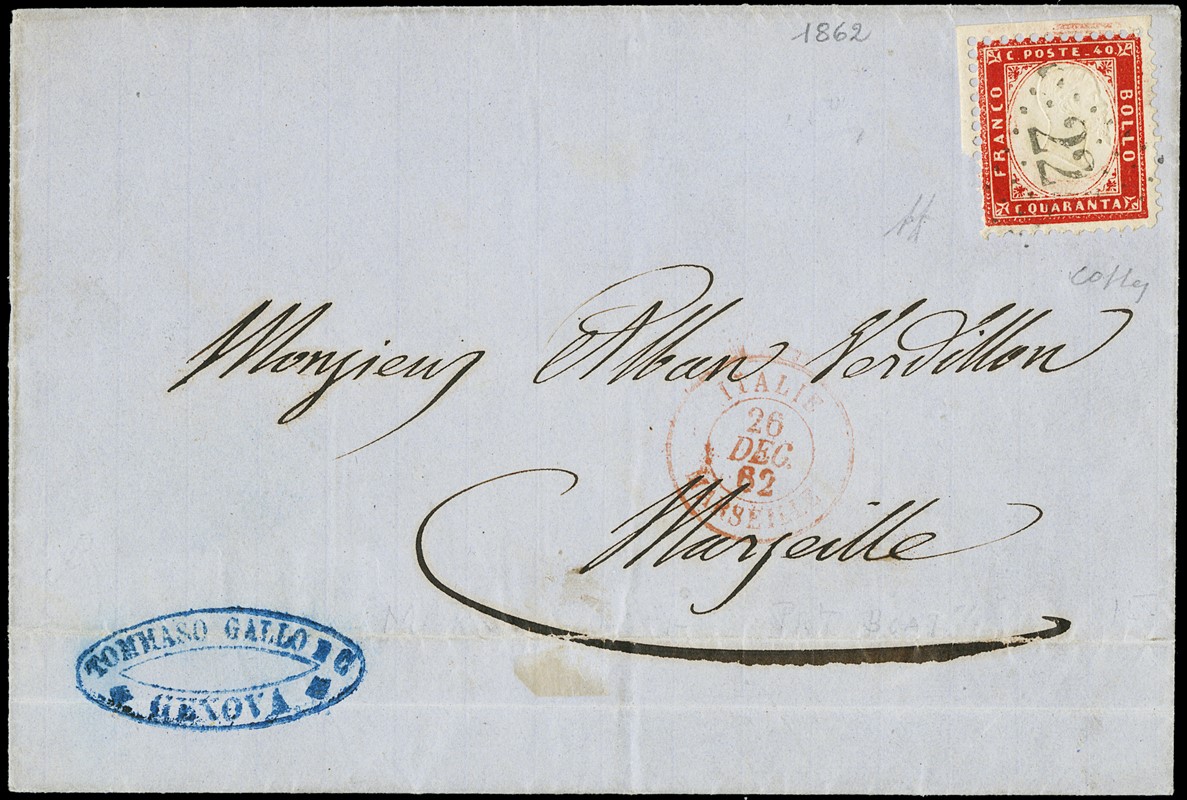 1862
C. POSTE. 40.
FRANCO
BOLLO
C. QUARANTA
22
Monsieur Alban Verdillon
ITALIE
26
DEC.
62
MARSEILLE
Marseille
TOMMASO GALLO E C
GENOVA